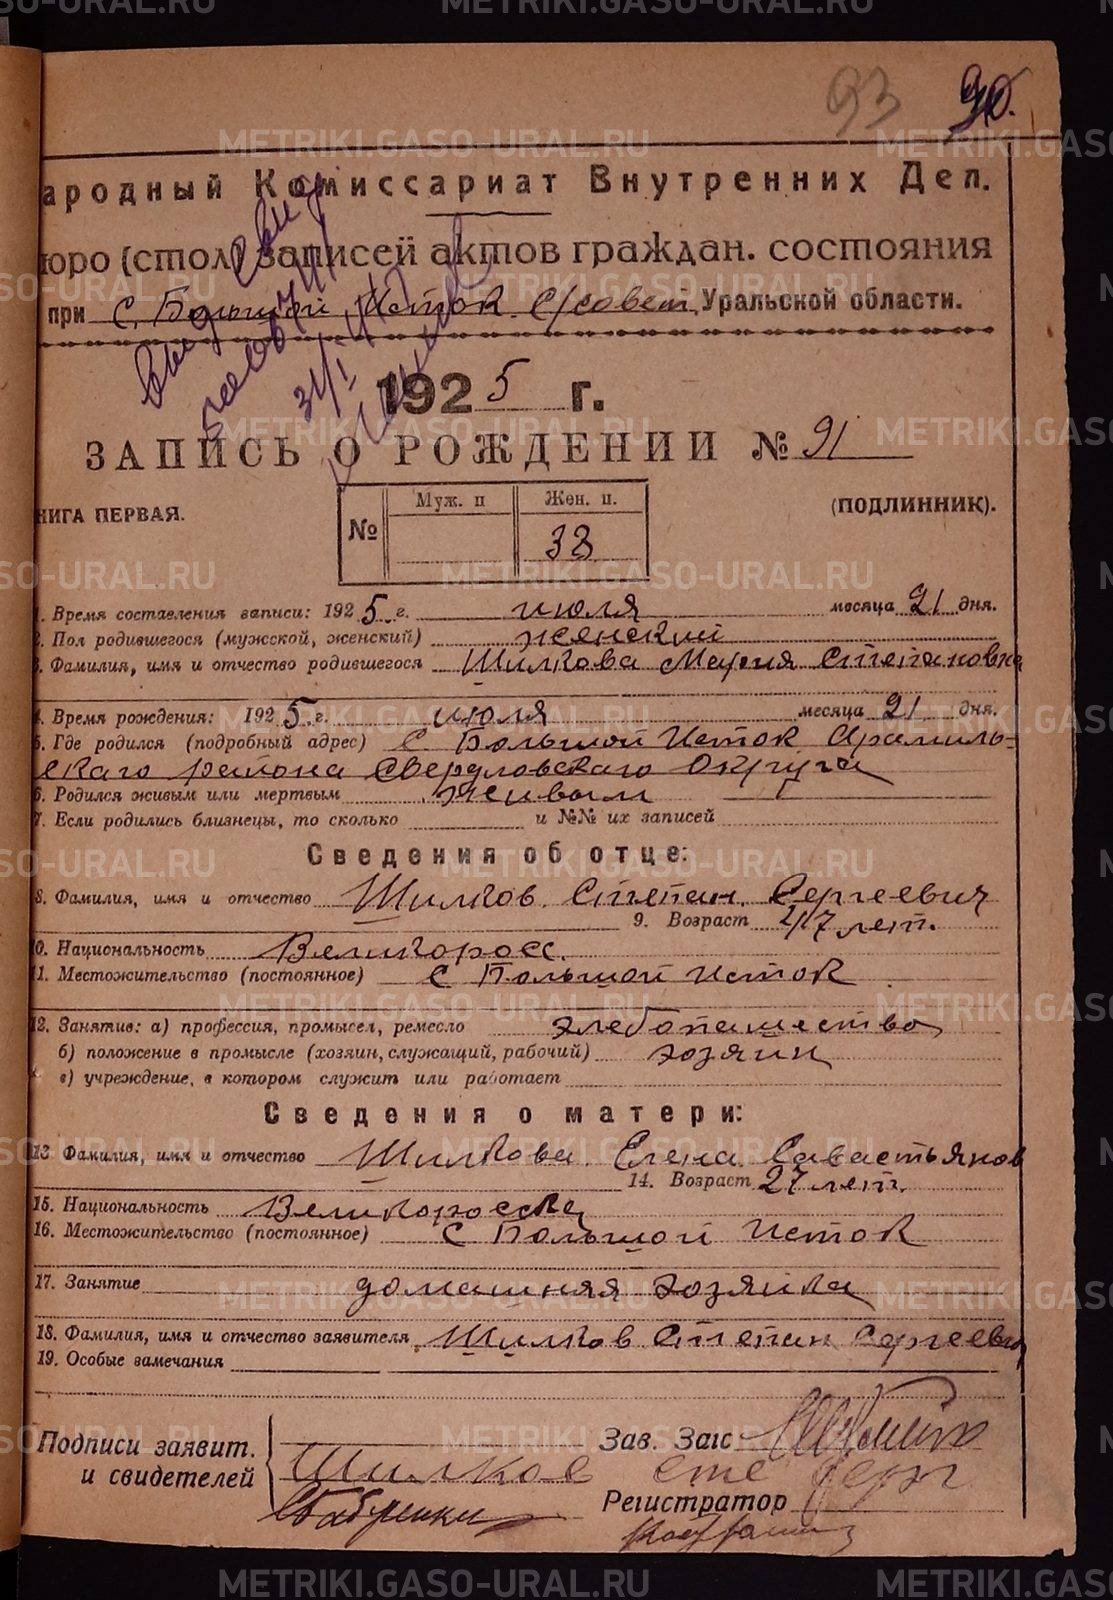 METRIKI.GASO-URAL.RU
93 90.
ародный Комиссариат Внутренних Дел.
юро (стол) записей актов граждан. состояния
при с. Большой Исток с/совет Уральской области.
31/I
1925 г.
ЗАПИСЬ О РОЖДЕНИИ № 91
НИГА ПЕРВАЯ.
(ПОДЛИННИК).
№ Муж. п Жен. п.
38
1. Время составления записи: 1925 г. июля месяца 21 дня.
2. Пол родившегося (мужсской, женский) женский
3. Фамилия, имя и отчество родившегося Шилкова Мария Степановна
4. Время рождения: 1925 г. июля месяца 21 дня.
5. Где родился (подробный адрес) с Большой Исток Арамиль-
скаго района Свердловскаго Округа
6. Родился живым или мертвым живым
7. Если родились близнецы, то сколько и №№ их записей
Сведения об отце:
8. Фамилия, имя и отчество Шилков Степан Сергеевич
9. Возраст 27 лет.
10. Национальность Великоросс.
11. Местожительство (постоянное) с Большой Исток
12. Занятие: а) профессия, промысел, ремесло хлебопашество
б) положение в промысле (хозяин, служащий, рабочий) хозяин
в) учреждение, в котором служит или работает
Сведения о матери:
13 Фамилия, имя и отчество Шилкова Елена Савастьянов
14. Возраст 27 лет.
15. Национальность Великоросска
16. Местожительство (постоянное) с Большой Исток
17. Занятие домашняя хозяйка
18. Фамилия, имя и отчество заявителя Шилков Степан Сергеевич
19. Особые замечания
Подписи заявит.
и свидетелей
Шилков сте серг
Зав. Загс
Регистратор